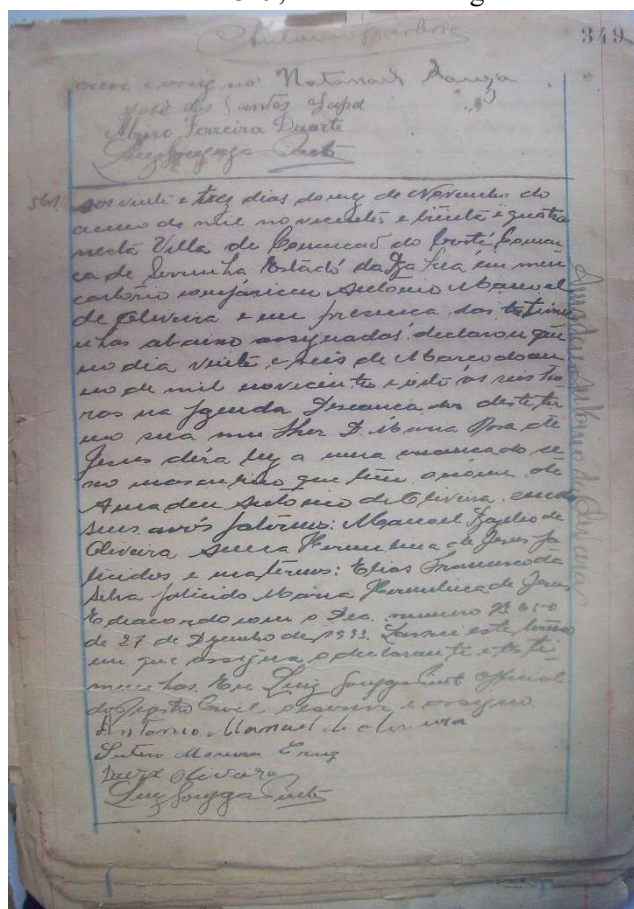 Antonio Barbosa
349
Natanael Souza
José dos Santos Lapa
Alvaro Ferreira Duarte
Luiz Gonzaga Pinto
Aos vinte e trez dias do mez de Novembro do
anno de mil novecentos e trinta e quatro
nesta Villa de Conceicaõ do Coité Comar
ca de Serrinha Estado da Bahia em meu
cartorio compareceu Antonio Manoel
de Oliveira e em presença das testemu
nhas abaixo assignadas declarou que
no dia vinte e seis de Março do an
no de mil novecentos e oito ás seis ho
ras na fazenda deste ter
mo sua mulher D. Maria Rosa de
Jesus déra luz a uma creança do se
xo masculino que tem o nome de
Amadeu Antonio de Oliveira sendo
seus avós paternos: Manoel de
Oliveira Herculina de Jesus fa
lecidos e maternos: Elias Francisco da
Silva falecido Maria Herculina de Jesus
de accordo com o Dec. numero
de 27 de Dezembro de 1933. Lavrei este termo
em que assigna o declarante e teste
munhas. Eu Luiz Gonzaga Pinto Official
do Registro Civil escrevi e assigno
Antonio Manoel de Oliveira
Moreira Cruz
David Oliveira
Luiz Gonzaga Pinto
Amadeu Antonio de Oliveira